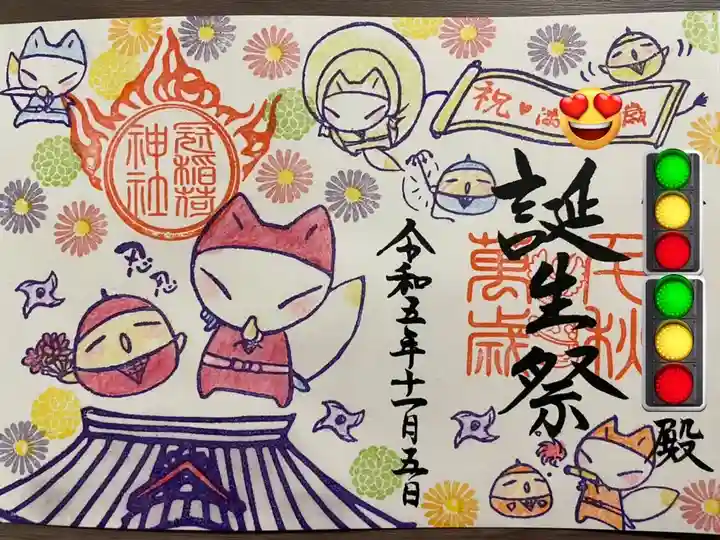 祝♥満
歳
誕生祭
千秋
萬歳
殿
令和五年十一月五日
冠稲荷
神社
忍
忍